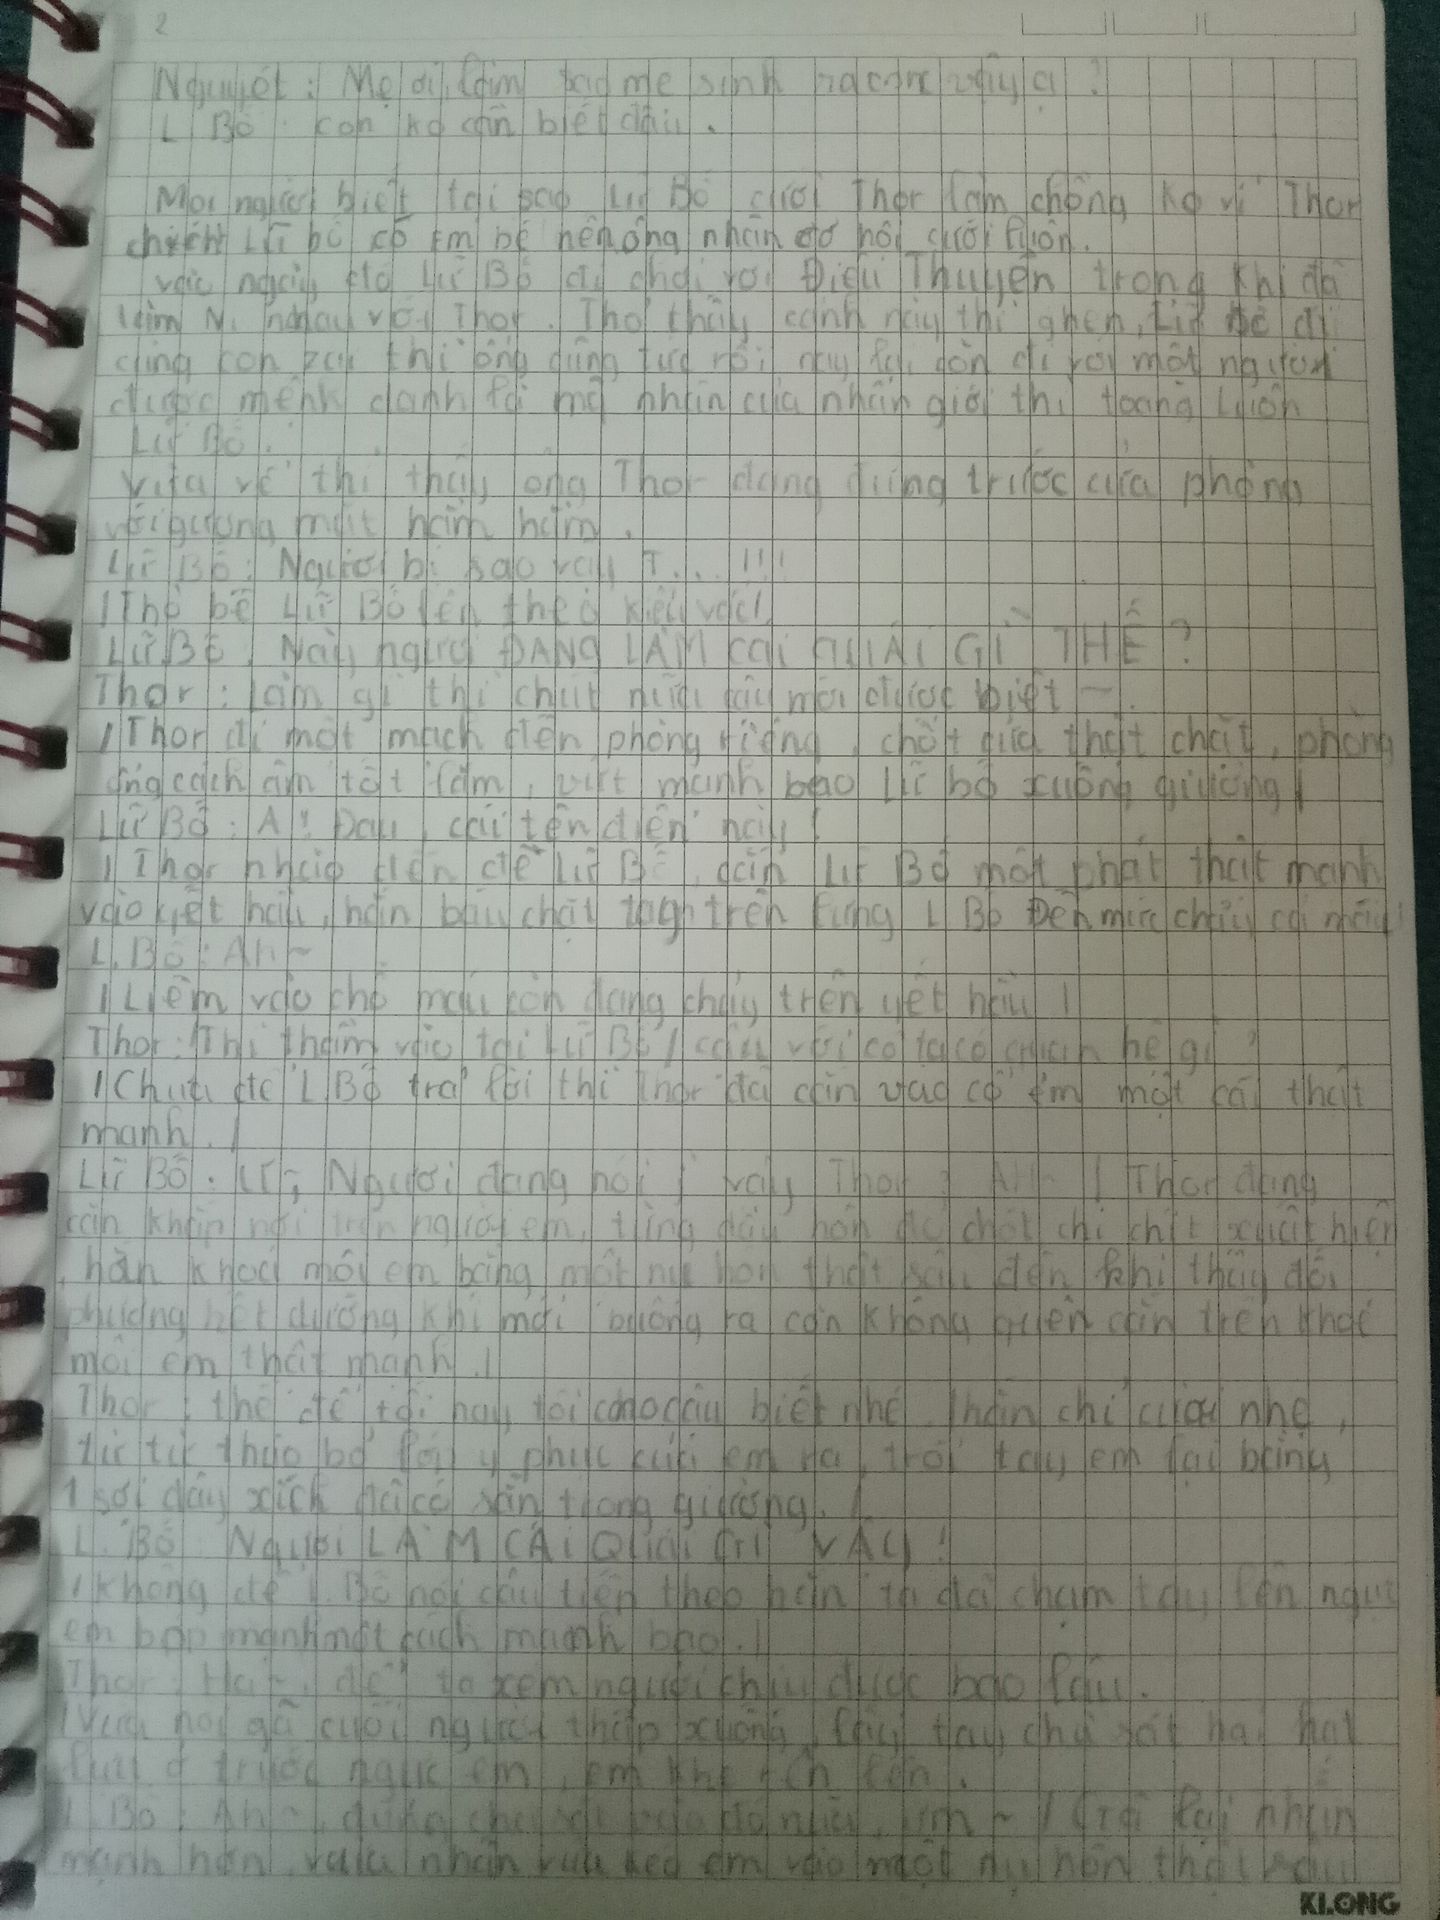 2
Nguyệt: Mẹ ơi, làm sao mẹ sinh ra con vậy ạ?
L Bố: con ko cần biết đâu.
Mọi người biết tại sao Lữ Bố cưới Thor làm chồng ko vì Thor
chịch Lữ bố có em bé nên ông nhân cơ hội cưới luôn.
vào ngày đó Lữ Bố đi chơi với Điêu Thuyền trong khi đã
với Thor. Tho thấy cảnh này thì ghen, Lữ Bố đi
cùng con thì ông cũng tức rồi, này lại còn đi với một người
được mệnh danh là mỹ nhân của nhân giới thì toang luôn
Lữ Bố.
Vừa về thì thấy ông Thor đang đứng trước cửa phòng
với gương mặt hằm hằm.
Lữ Bố: Ngươi bị sao vậy T...!!!
/Tho bế Lữ Bố lên theo kiểu vác/
Lữ Bố: Này ngươi ĐANG LÀM cái QUÁI GÌ THẾ?
Thor: làm gì thì chút nữa cậu mới được biết ~.
/Thor đi một mạch đến phòng riêng, chốt cửa thật chặt, phòng
ông cách âm tốt lắm, vứt mạnh bạo Lữ bố xuống giường/
Lữ Bố: A! Đau, cái tên điên này!
/Thor nhào đến đè Lữ Bố, cắn Lữ Bố một phát thật mạnh
vào yết hầu, hắn bấu chặt tay trên lưng L Bố Đến mức chảy cả máu/
L.Bố: Ah~
/Liếm vào chỗ máu còn đang chảy trên yết hầu/
Thor: /Thì thầm vào tai Lữ Bố/ cậu với cô ta có quan hệ gì?
/Chưa để L Bố trả lời thì Thor đã cắn vào cổ em một cái thật
mạnh./
Lữ Bố: Ngươi đang nói gì vậy Thor? Ah~ /Thor đang
cắn khắp nơi trên người em, từng dấu hôn đỏ chót chi chít xuất hiện
, hắn khoá môi em bằng một nụ hôn thật sâu đến khi thấy đối
phương hết dưỡng khí mới buông ra còn không quên cắn trên khoé
môi em thật mạnh./
Thor: thế để tôi nay tôi cho cậu biết nhé. /hắn chỉ cười nhẹ,
từ từ tháo bỏ lớp y phục của em ra, trói tay em lại bằng
1 sợi dây xích đã có sẵn trong giường./
L. Bố: Ngươi LÀM CÁI QUÁI GÌ VẬY!
/Không để L Bố nói câu tiếp theo hắn ta đã chạm tay lên ngực
em bóp mạnh một cách mạnh bạo./
Thor: Ha~, để ta xem ngươi chịu được bao lâu.
/Vừa nói gã cười người thấp xuống, lấy tay hai hạt
ở trước ngực em, em khẽ lên.
L Bố: Ah~, đừng nữa, ~ / lại nhấn
mạnh hơn, vừa nhấn vừa kéo em vào một nụ hôn thật sâu
KLONG